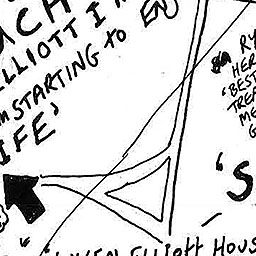 ACH
ELLIOTT I
STARTING to EN
IFE'
RY
HER
'BEST
TREA
ME
G
'S
ELLIOTT HOUS